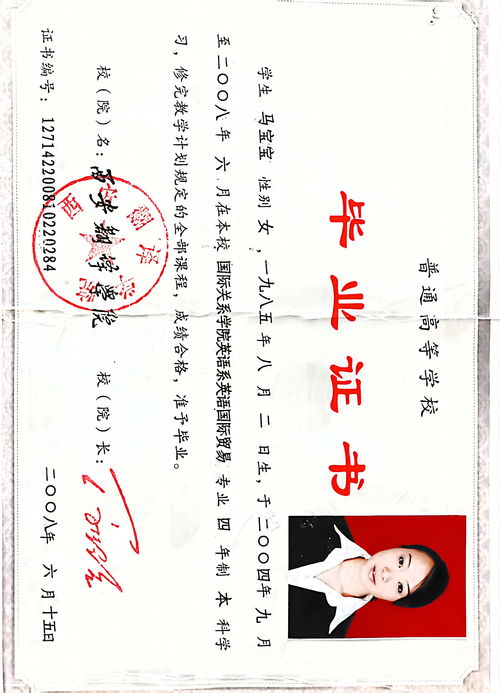 普通高等学校
毕业证书
学生 马宝宝 性别 女，一九八五年 八 月 二 日生，于二〇〇四年 九 月
至二〇〇八年 六 月在本校 国际关系学院英语系英语国际贸易 专业 四 年制 本 科学
习，修完教学计划规定的全部课程，成绩合格，准予毕业。
校（院）名：西安翻译学院 校（院）长：
证书编号：127142200810220284 二〇〇八年 六 月十五日